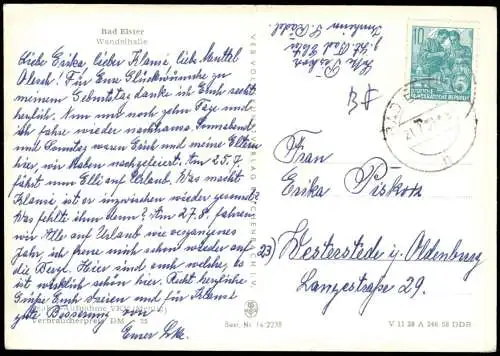 Bad Elster
Wandelhalle
Liebe Erika lieber Klausi, liebe Muttel
Olesch! Für Eure Glückwünsche zu
meinem Geburtstage danke ich Euch recht
herzlich. Nun nur noch zehn Tage und
ich fahre wieder nachhause. Sonnabend
und Sonntag waren Erich und meine Eltern
hier, wir haben nachgefeiert. Am 25.7.
fährt nun Elli auf Urlaub. Was macht
Klausi ist er inzwischen wieder gesund?
Was fehlt ihm denn? Am 27.8. fahren
wir Alle auf Urlaub wie vergangenes
Jahr, ich freue mich schon wieder auf
die Berge. Hier sind auch welche, es
ist wirklich schön hier. Recht herzliche
Grüße Euch Dreien und für Klausi
gute Besserung von
Eurer
Verbraucherpreis DM
Best.-Nr. 14/2238
Bad Elster
10
DEUTSCHE
DEMOKRATISCHE REPUBLIK
BAD
Frau
Erika Piskoth
23) Westerstede i. Oldenburg
Langestraße 29.
V 11 28 A 246 58 DDR